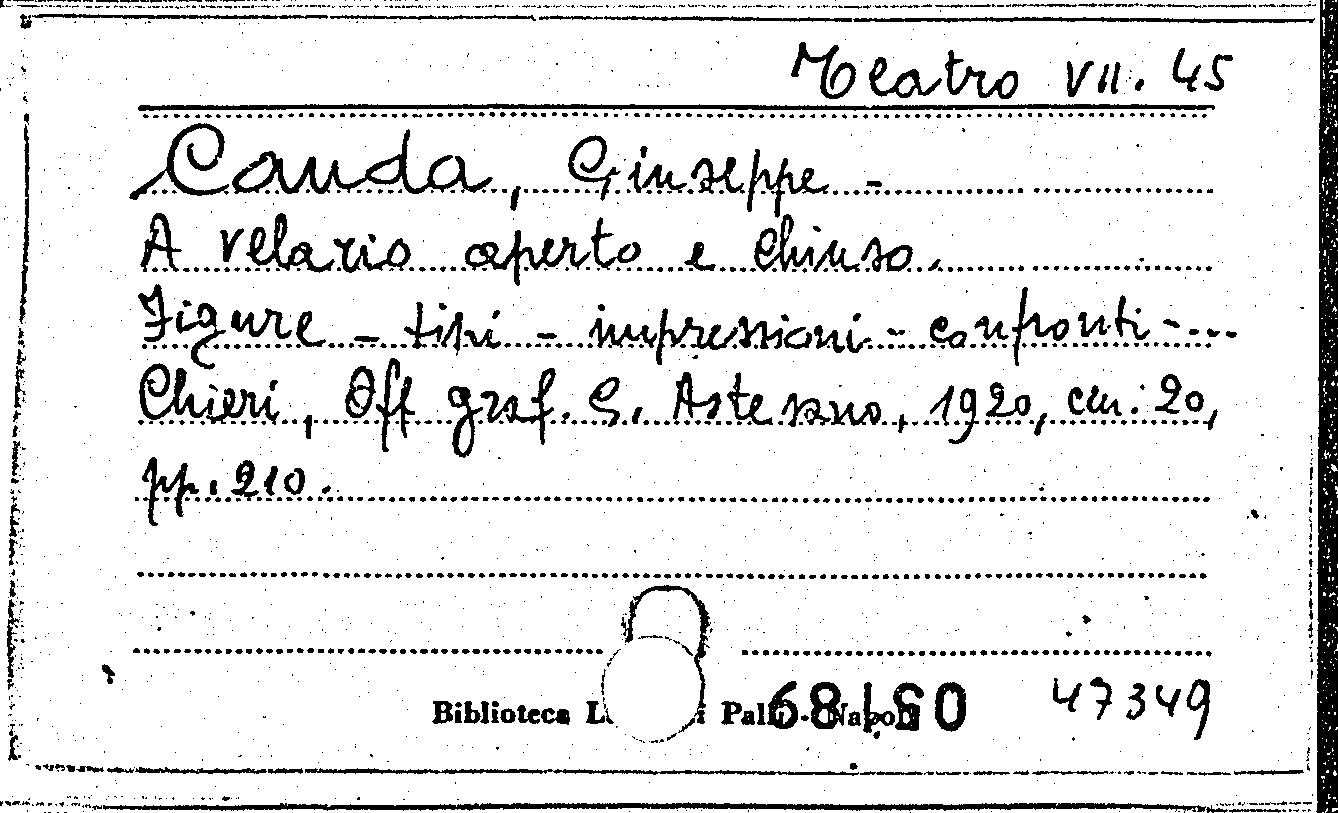 Teatro VII. 45
Cauda, Giuseppe -
A velario aperto e chiuso.
Figure - tipi - impressioni - confronti - ...
Chieri, Off graf. G. Astesano, 1920, cm. 20,
pp. 210.
Biblioteca Napoli
47349